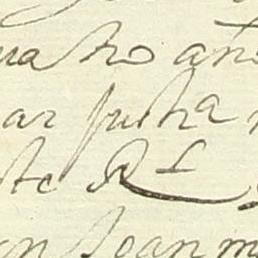 uatro añ
ar justa
te Rl
n Joan m